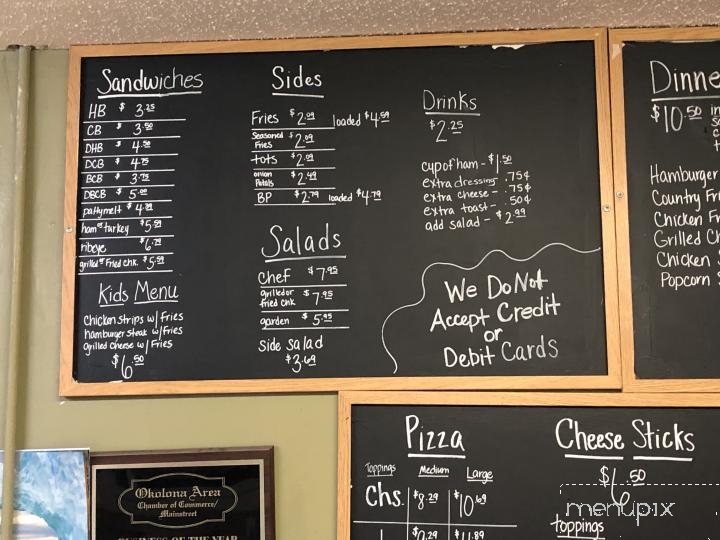 Sandwiches
HB $3.25
CB $3.50
DHB $4.50
DCB $4.75
BCB $3.75
DBCB $5.00
patty melt $4.29
ham or turkey $5.59
ribeye $6.29
grilled or Fried chk. $5.59
Kids Menu
Chicken strips w/ Fries
hamburger steak w/ Fries
grilled cheese w/ Fries
$6.50
Sides
Fries $2.09 loaded $4.59
Seasoned Fries $2.09
tots $2.09
onion Petals $2.49
BP $2.79 loaded $4.79
Salads
chef $7.95
grilled or fried chk $7.95
garden $5.95
side salad
$3.69
Drinks
$2.25
cup of ham - $1.50
extra dressing - .75¢
extra cheese - .75¢
extra toast - .50¢
add salad - $2.99
We Do Not
Accept Credit
or
Debit Cards
$10.50
Hamburger
Country
Chicken
Grilled
Chicken
Popcorn
Pizza
Toppings Medium Large
Chs. $8.29 $10.69
$11.89
Cheese Sticks
$6.50
toppings
menupix
Okolona Area
Chamber of Commerce/
Mainstreet
BUSINESS OF THE YEAR